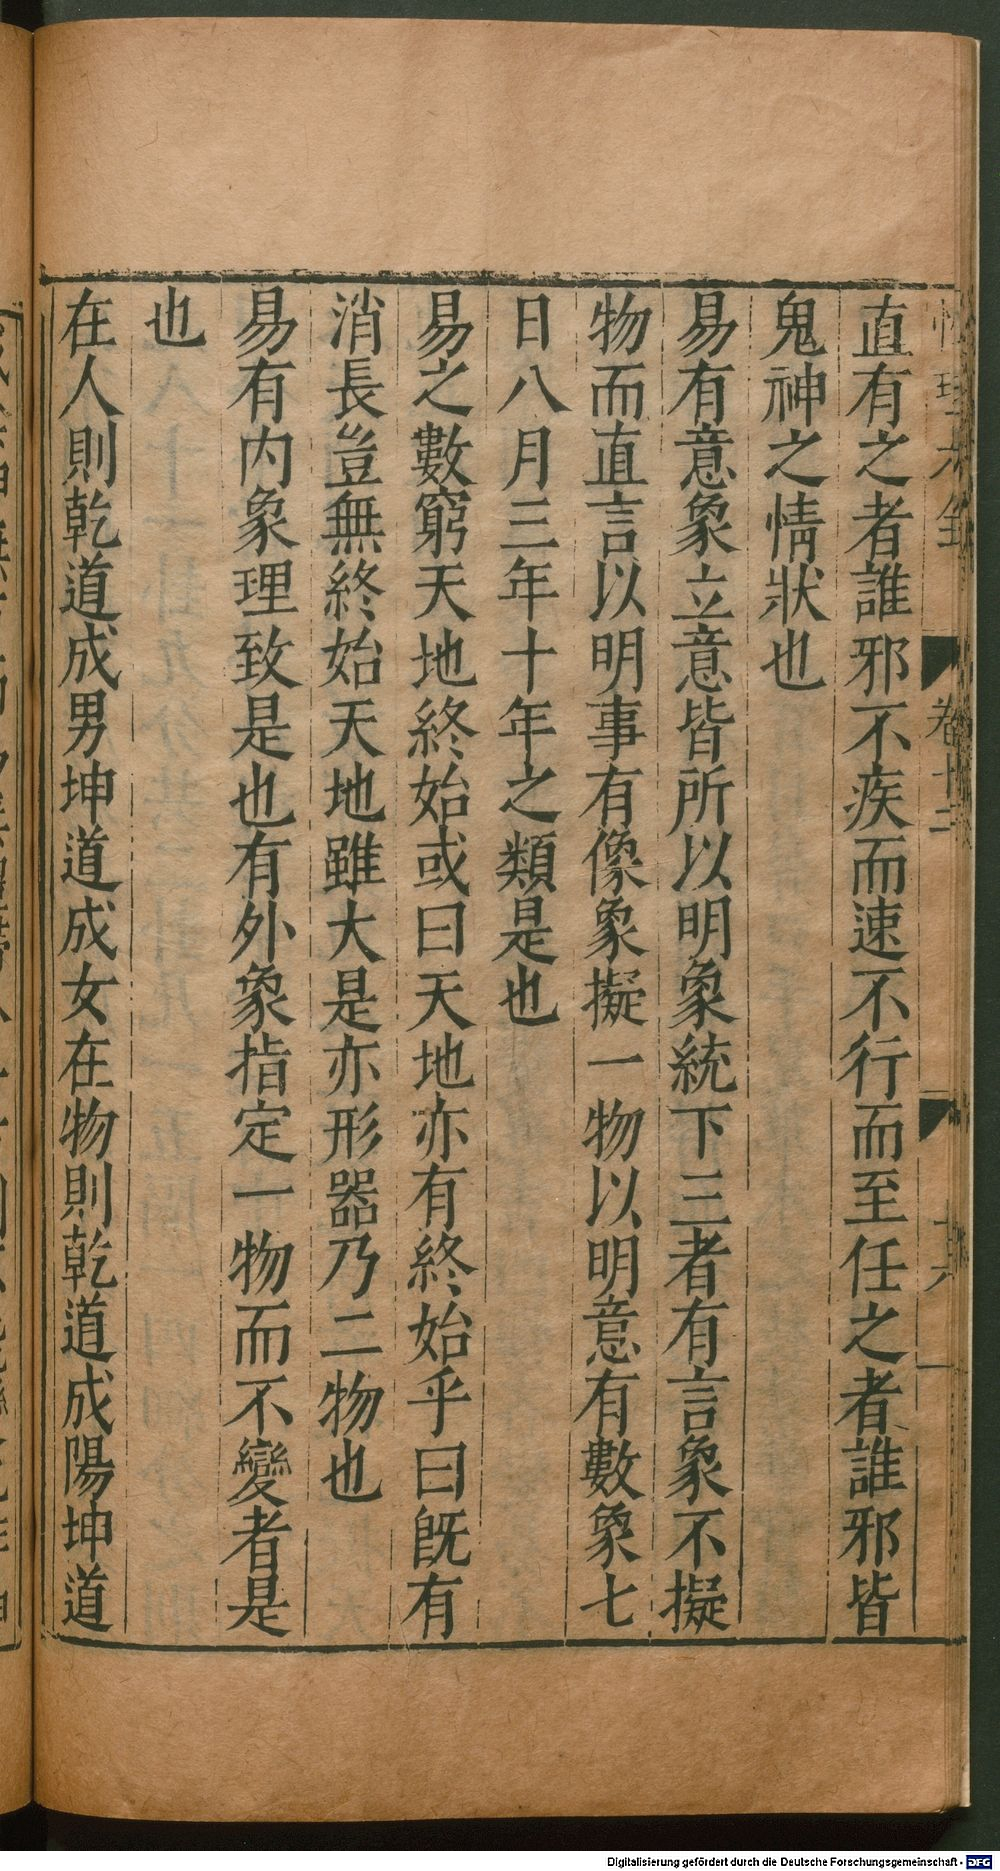 性理大全
卷十二
直有之者誰邪不疾而速不行而至任之者誰邪皆
鬼神之情狀也
易有意象立意皆所以明象統下三者有言象不擬
物而直言以明事有像象擬一物以明意有數象七
日八月三年十年之類是也
易之數窮天地終始或曰天地亦有終始乎曰旣有
消長豈無終始天地雖大是亦形器乃二物也
易有内象理致是也有外象指定一物而不變者是
也
在人則乾道成男坤道成女在物則乾道成陽坤道
Digitalisierung gefördert durch die Deutsche Forschungsgemeinschaft - DFG